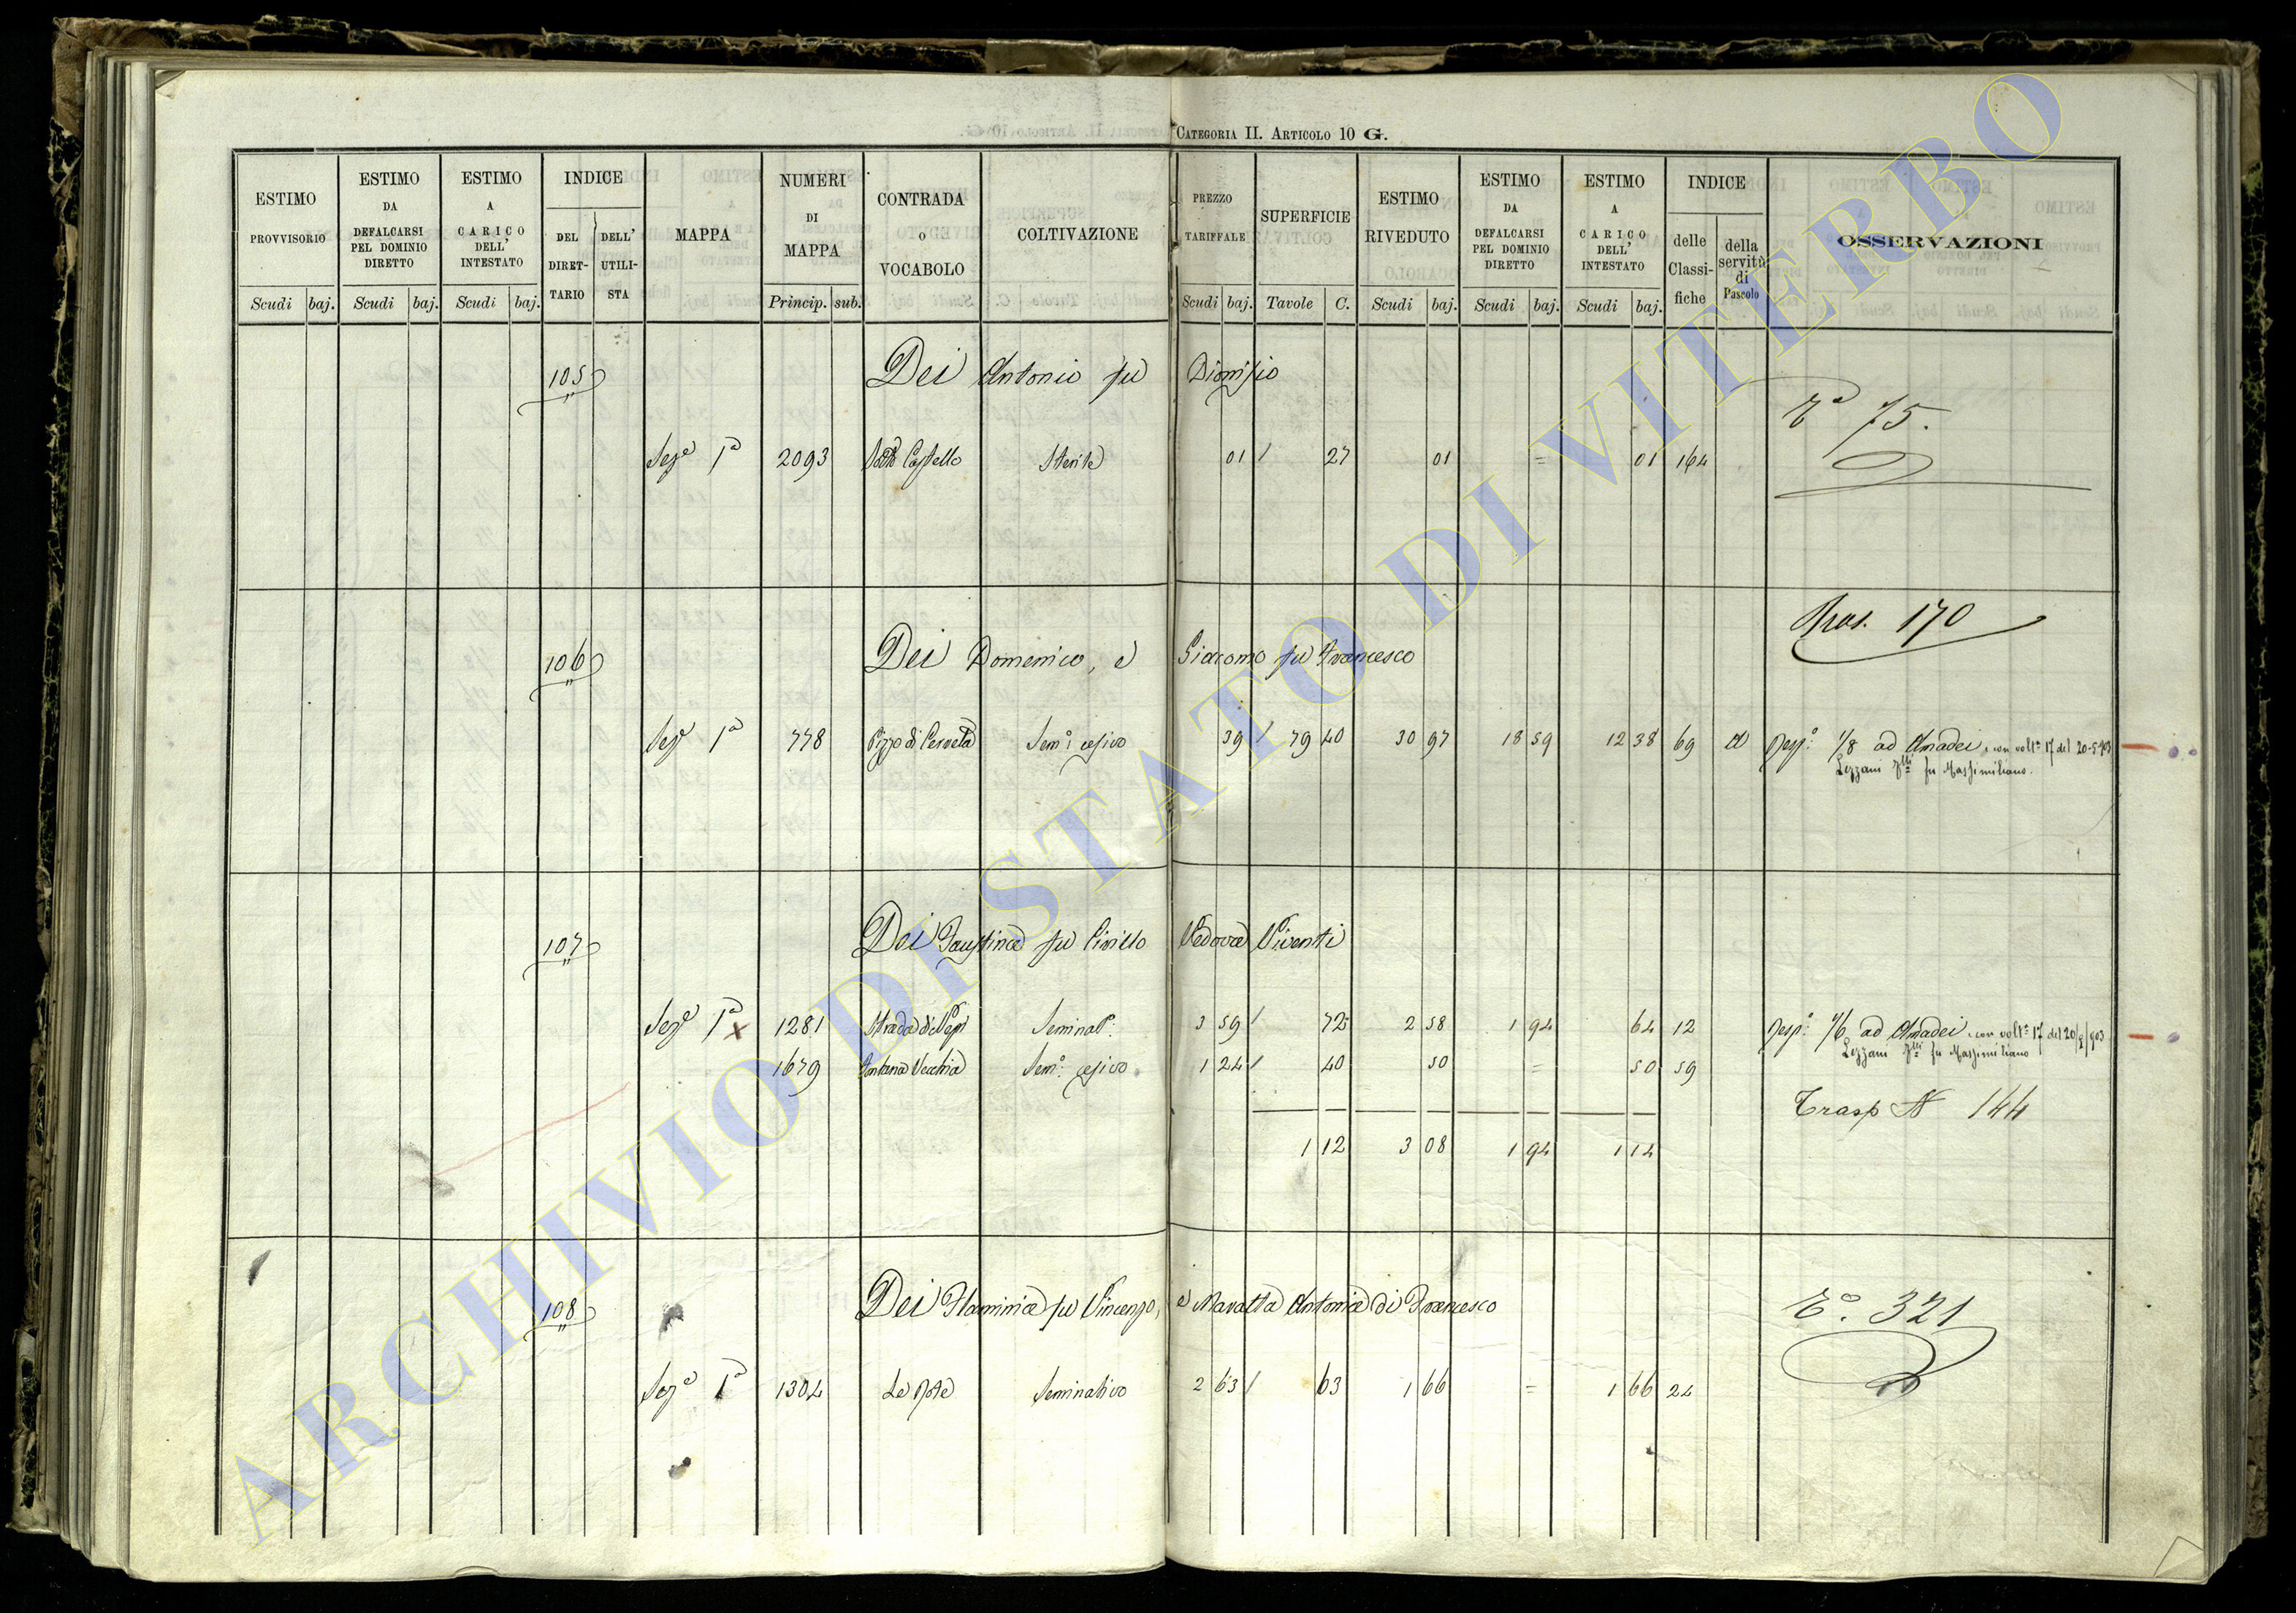 CATEGORIA II. ARTICOLO 10 G.
ESTIMO PROVVISORIO Scudi baj.
ESTIMO DA DEFALCARSI PEL DOMINIO DIRETTO Scudi baj.
ESTIMO A CARICO DELL' INTESTATO Scudi baj.
INDICE DEL DIRET-TARIO DELL' UTILI-STA
MAPPA
NUMERI DI MAPPA Princip. sub.
CONTRADA O VOCABOLO
COLTIVAZIONE
PREZZO TARIFFALE Scudi baj.
SUPERFICIE Tavole C.
ESTIMO RIVEDUTO Scudi baj.
ESTIMO DA DEFALCARSI PEL DOMINIO DIRETTO Scudi baj.
ESTIMO A CARICO DELL' INTESTATO Scudi baj.
INDICE delle Classi-fiche della servitù di Pascolo
OSSERVAZIONI
105 Dei Antonio fu Dionisio
Tº 75.
Sezе 1ª 2093 Castello Sterile 01 / 27 01 = 01 164
106 Dei Domenico, e Giacomo fu Francesco
170
Sezе 1ª 778 Pizzo di Sem: cesivo 39 / 79 40 30 97 18 59 12 38 69 1/8 ad Amadei, con volt: 17 del 20-5-903
Lezzani flli fu Massimiliano.
107 Dei Faustina fu Cirillo Vedova Viventi
Sezе 1ª x 1281 Strada di Nepi Seminat: 3 59 / 72 2 58 1 94 64 12 1/6 ad Amadei, con volt: 17 del 903
Lezzani flli fu Massimiliano
1679 Fontana Vecchia Sem: cesivo 1 24 / 40 50 = 50 59
Trasp N 144
1 12 3 08 1 94 1 14
108 Dei Flaminia fu Vincenzo, e Antonia di Francesco
Tº. 321
Sezе 1ª 1304 Le Seminativo 2 63 / 63 1 66 = 1 66 24
ARCHIVIO DI STATO DI VITERBO